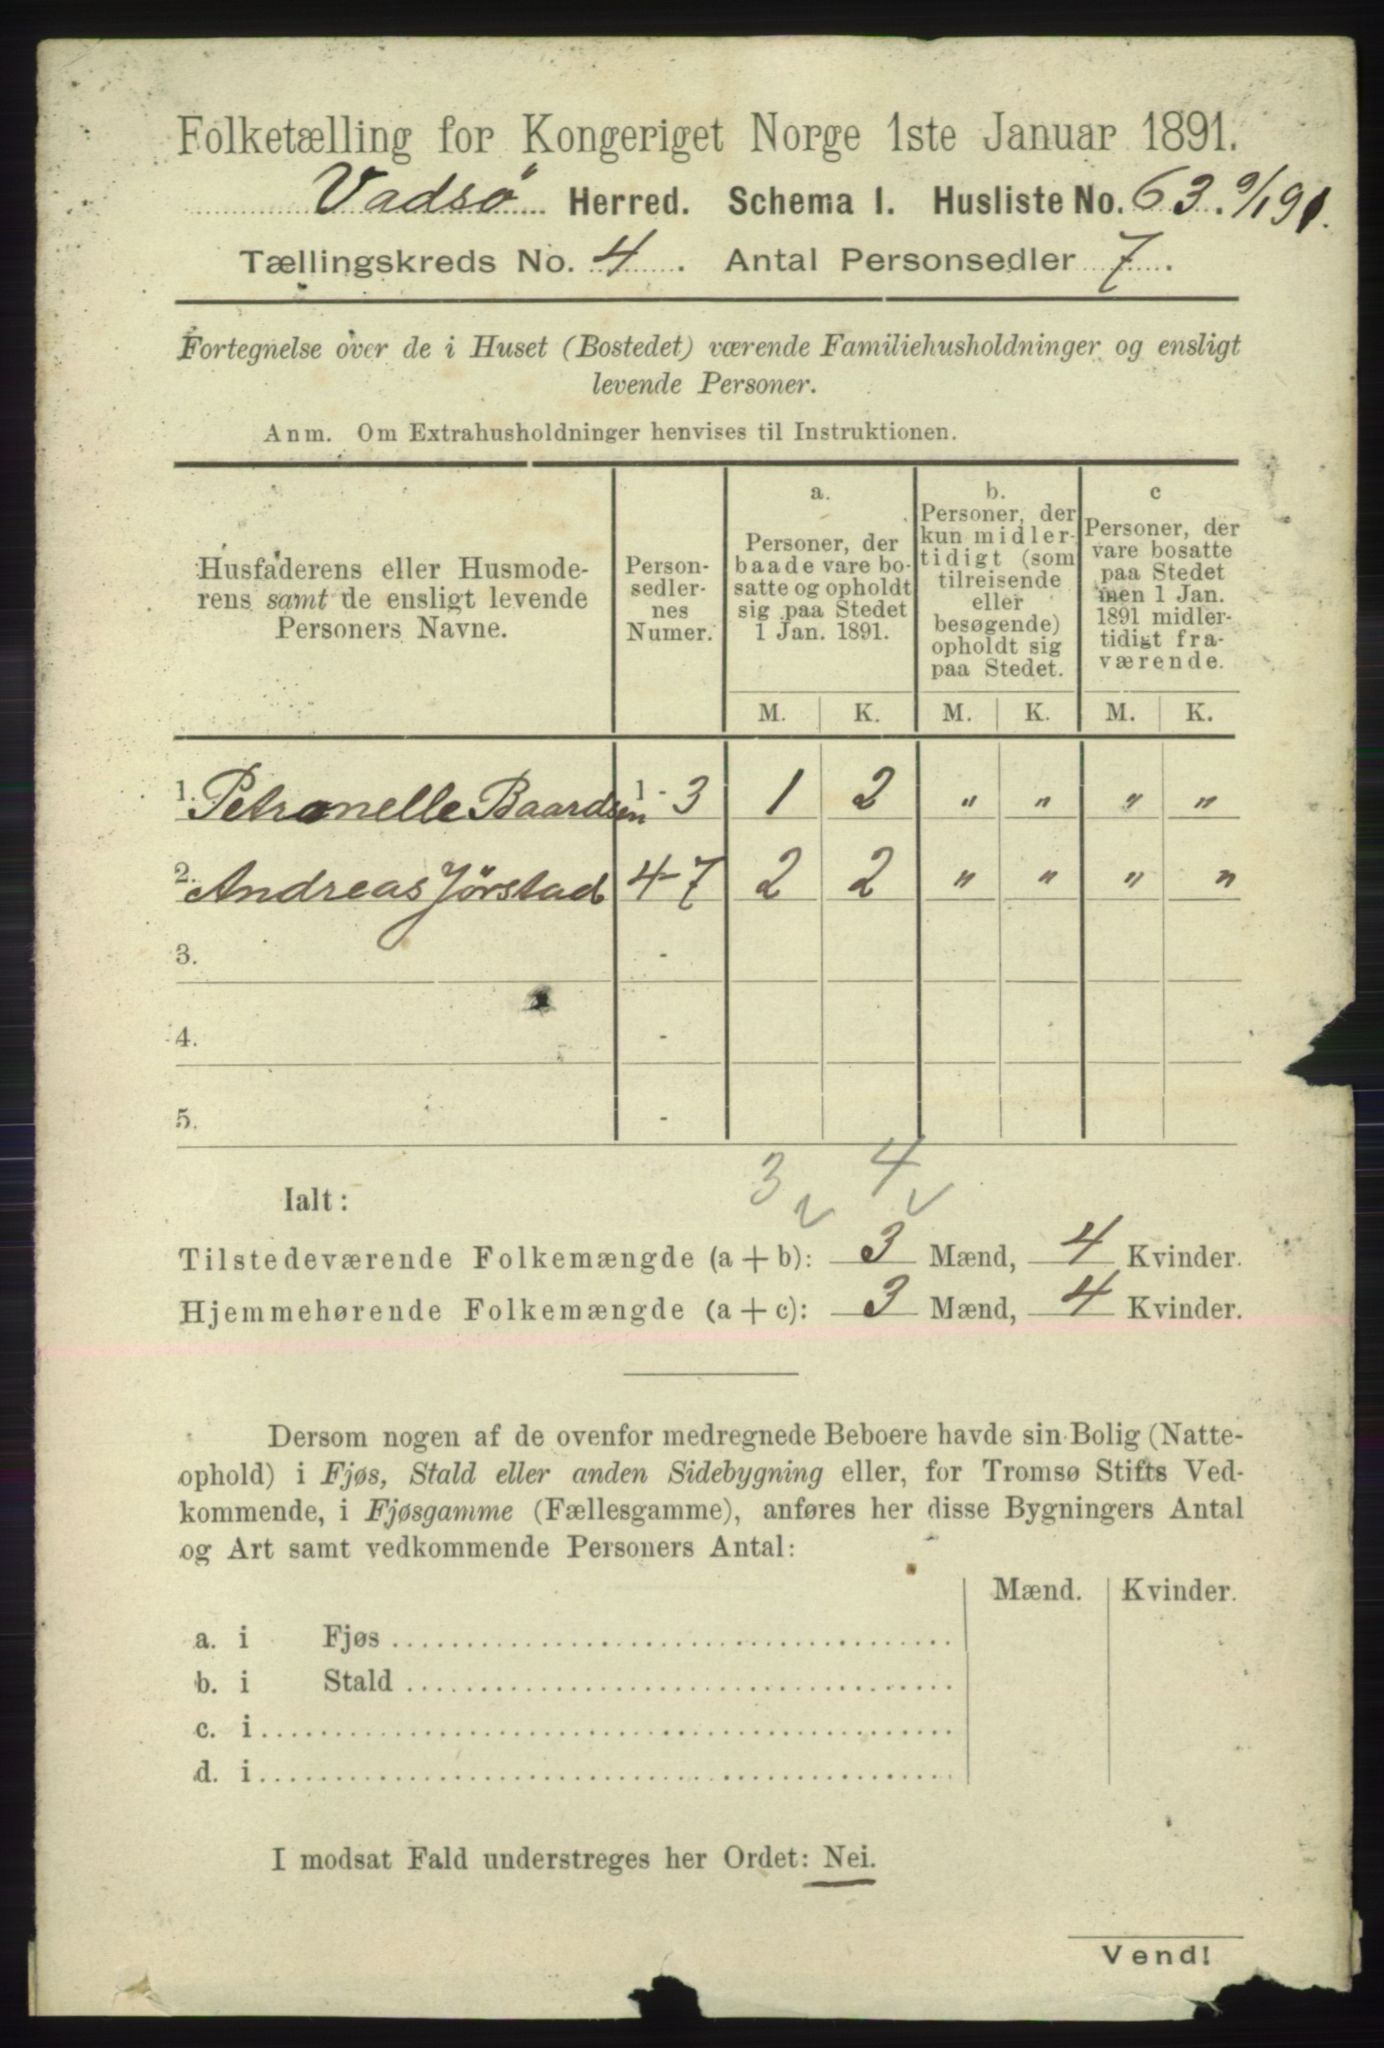 Folketælling for Kongeriget Norge 1ste Januar 1891.
Vadsø Herred. Schema I. Husliste No. 63. 9/1 91.
Tællingskreds No. 4. Antal Personsedler 7.
Fortegnelse over de i Huset (Bostedet) værende Familiehusholdninger og ensligt
levende Personer.
Anm. Om Extrahusholdninger henvises til Instruktionen.
Husfaderens eller Husmode-
rens samt de ensligt levende
Personers Navne.
Person-
sedler-
nes
Numer.
a.
Personer, der
baade vare bo-
satte og opholdt
sig paa Stedet
1 Jan. 1891.
b.
Personer, der
kun midler-
tidigt (som
tilreisende
eller
besøgende)
opholdt sig
paa Stedet.
c
Personer, der
vare bosatte
paa Stedet
men 1 Jan.
1891 midler-
tidigt fra-
værende.
M. K. M. K. M. K.
1. Petronelle Baardsen 1 - 3 1 2 " " " "
2. Andreas Jørstad 4-7 2 2 " " " "
3. -
4. -
5. -
3 4
Ialt:
Tilstedeværende Folkemængde (a + b): 3 Mænd, 4 Kvinder.
Hjemmehørende Folkemængde (a + c): 3 Mænd, 4 Kvinder.
Dersom nogen af de ovenfor medregnede Beboere havde sin Bolig (Natte-
ophold) i Fjøs, Stald eller anden Sidebygning eller, for Tromsø Stifts Ved-
kommende, i Fjøsgamme (Fællesgamme), anføres her disse Bygningers Antal
og Art samt vedkommende Personers Antal:
Mænd. Kvinder.
a. i Fjøs
b. i Stald
c. i
d. i
I modsat Fald understreges her Ordet: Nei.
Vend!